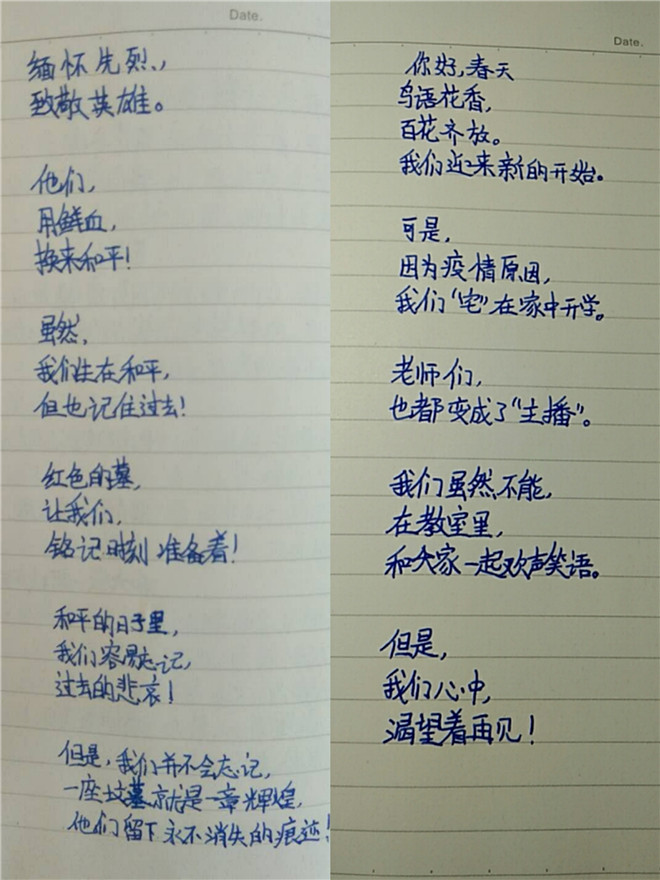 Date.
缅怀先烈,
致敬英雄。
他们,
用鲜血,
换来和平!
虽然,
我们生在和平,
但也记住过去!
红色的墓,
让我们,
铭记时刻准备着!
和平的日子里,
我们容易忘记,
过去的悲哀!
但是,我们并不会忘记,
一座坟墓就是一章辉煌,
他们留下永不消失的痕迹!
Date.
你好,春天
鸟语花香,
百花齐放。
我们迎来新的开始。
可是,
因为疫情原因,
我们“宅”在家中开学。
老师们,
也都变成了“主播”。
我们虽然不能,
在教室里,
和大家一起欢声笑语。
但是,
我们心中,
渴望着再见!